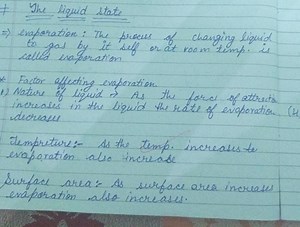 The liquid State
=> evaporation: The process of changing liquid
to gas by it self or at room temp. is
called evaporation
* Factor affecting evaporation
Nature of liquid → As the force of attractio
increases in the liquid the rate of evaporation
decreases
Tempreture:- As the temp. increases te
evaporation also increase
Surface area:- As surface area increases
evaporation also increases.